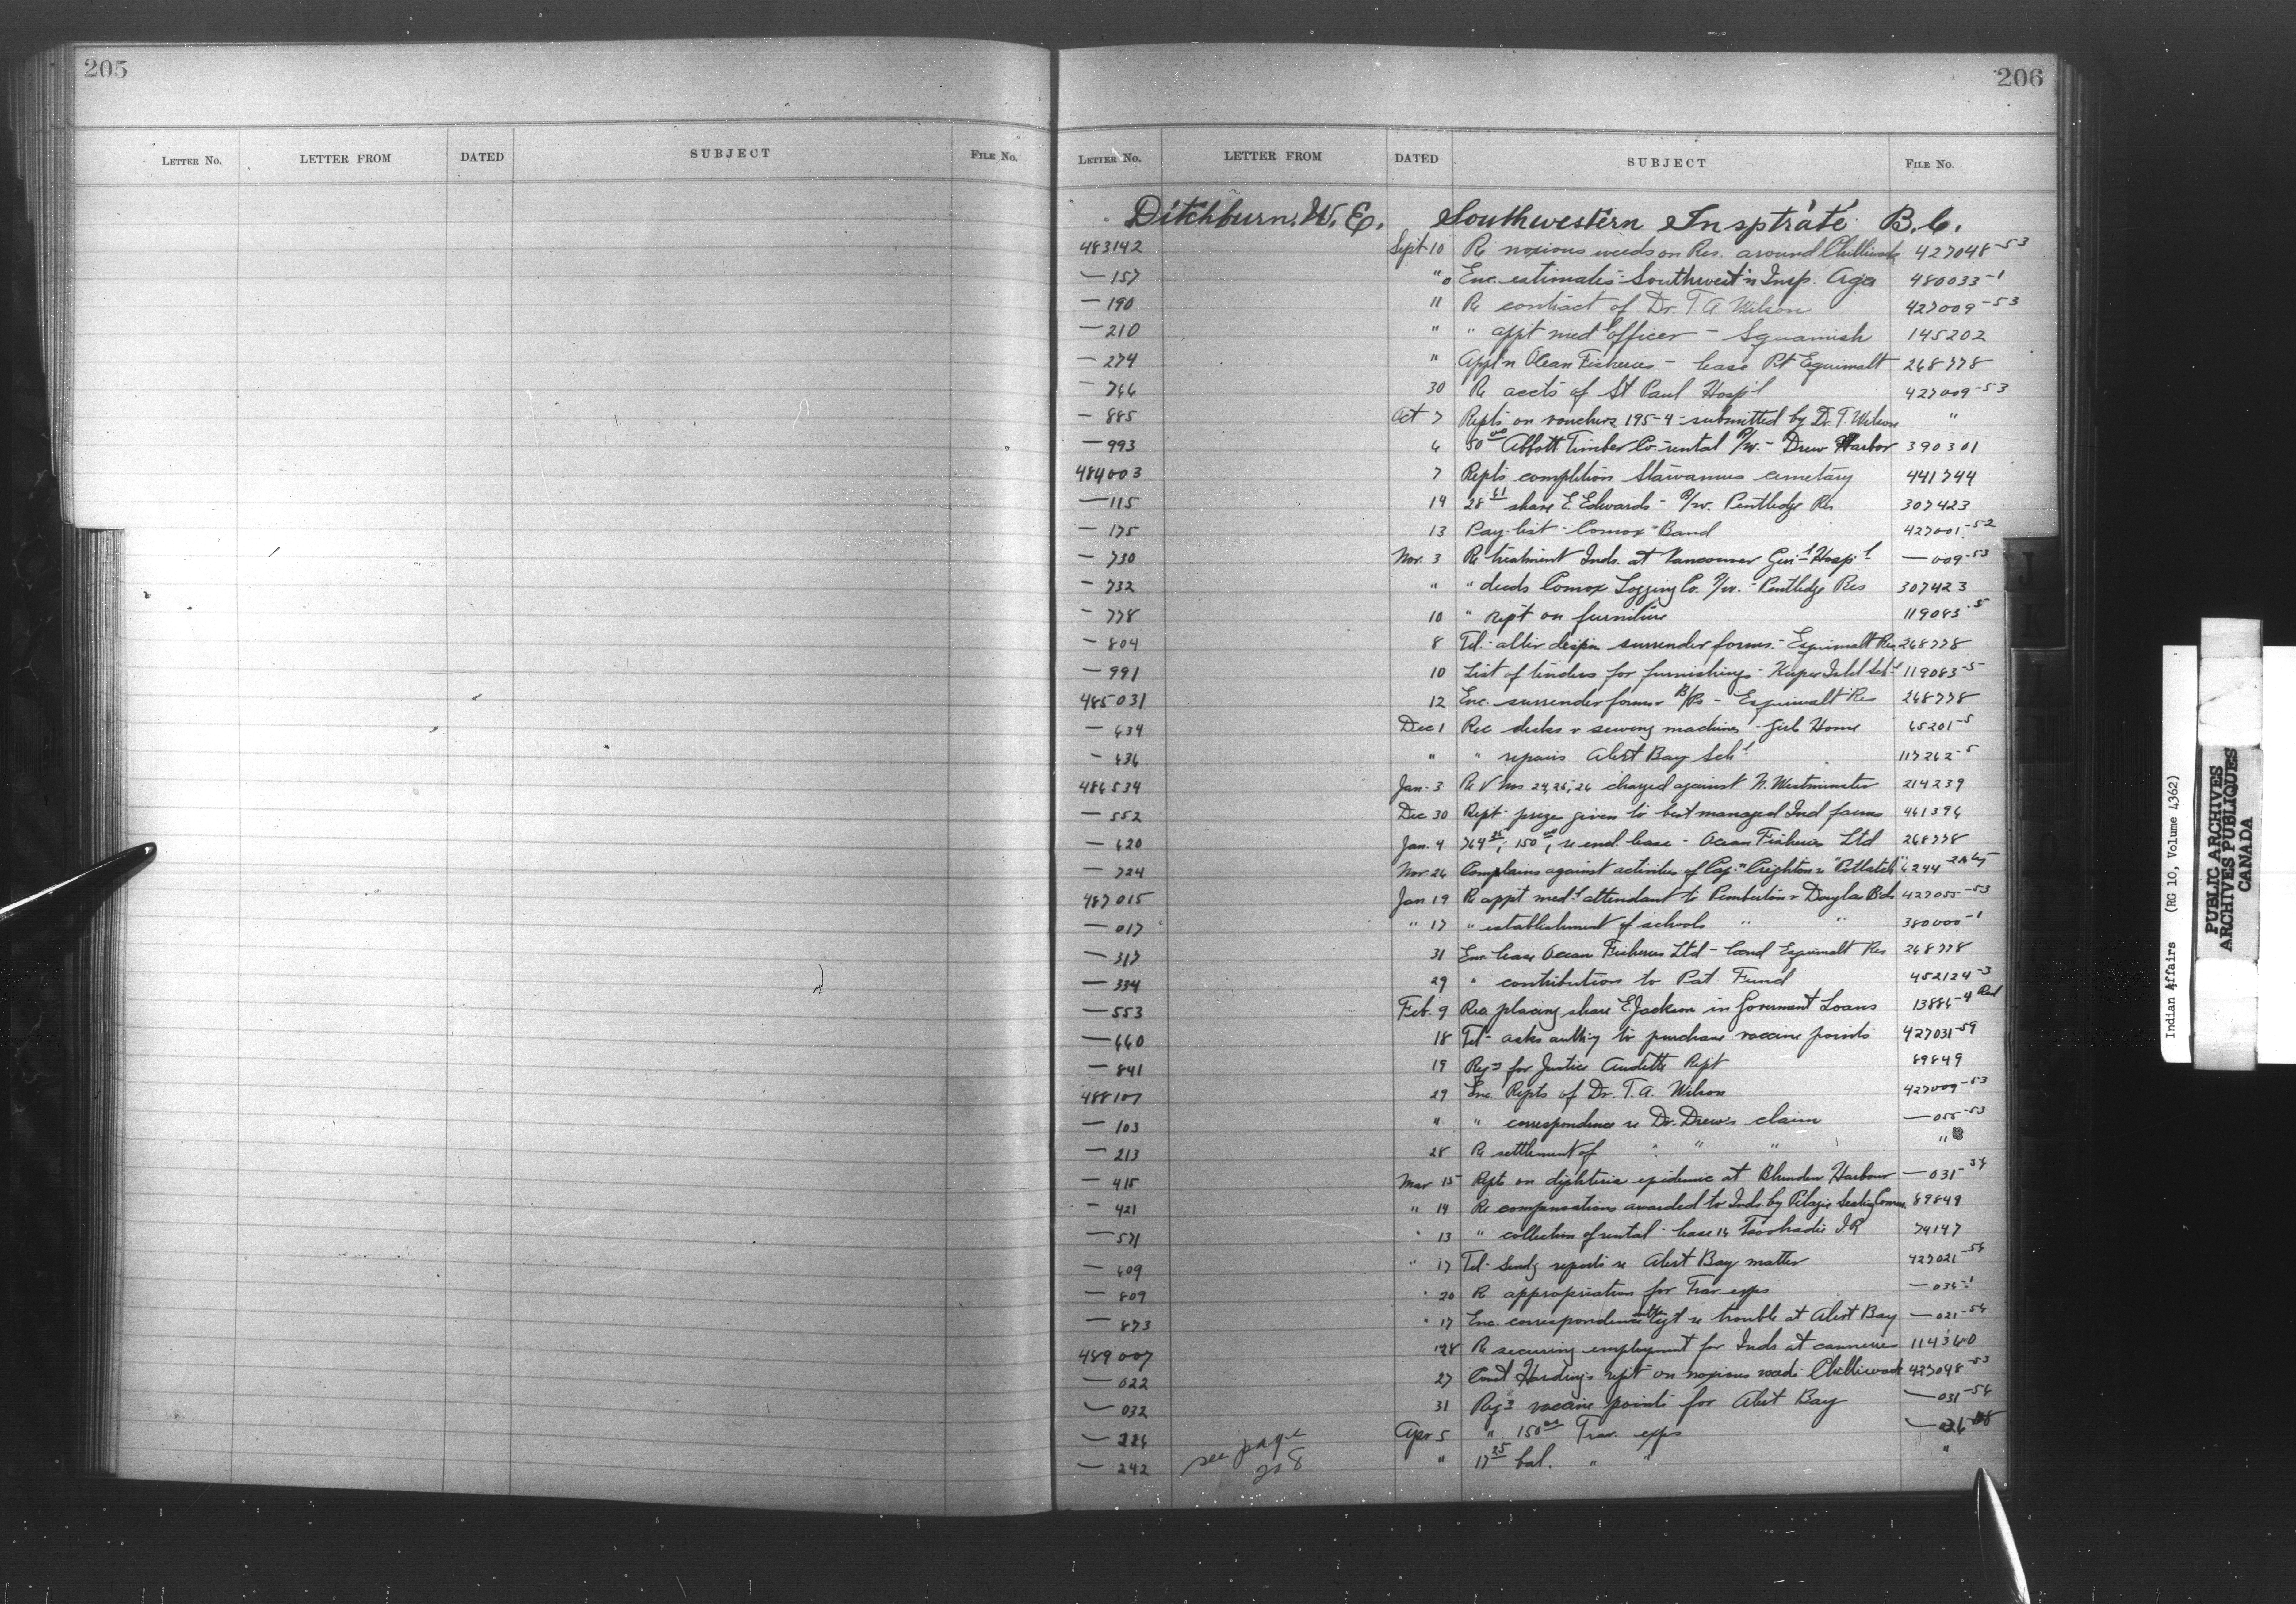 205
Letter No. LETTER FROM DATED SUBJECT File No.
206
Letter No. LETTER FROM DATED SUBJECT File No.
Ditchburn, W. E. Southwestern Insptrate B.C.
483142 Sept 10 Re noxious weeds on Res. around Chilliwack 427048-53
— 157 " " Enc. estimates - Southwest'n Insp. 480033-1
— 190 11 Re contract of Dr. T. A Wilson 427009-53
— 210 " " appt med officer — Squamish 145202
— 274 " Appl'n Ocean Fisheries — lease Pt Esquimalt 268778
— 744 30 Re accts of St. Paul Hosp'l 427009-53
— 885 Oct 7 Repts on vouchers 195-4 - submitted by Dr. T. Wilson "
— 993 6 50 00 Abbott Timber Co. rental P/w. - Drew Harbor 390301
484003 7 Repts completion Stawamus cemetary 441744
— 115 14 28 61 share E. Edwards - P/w. Pentledge Res 307423
— 175 13 Pay-list - Comox Band 427001-52
— 730 Nov. 3 Re treatment Inds. at Vancouver Gen'l Hosp'l — 009-53
— 732 " " deeds Comox Logging Co. P/w. - Pentledge Res 307423
— 778 10 " rept on furniture 119083-5
— 804 8 Tel - surrender forms - Esquimalt Res 268778
— 991 10 List of tenders for furnishings - Kuper Isld Sch'l 119083-5
485031 12 Enc. surrender forms - Esquimalt Res 268778
— 634 Dec 1 Rec desks & sewing machines - Girls Home 65201-5
— 636 " " repairs Alert Bay Sch'l 117262-5
486534 Jan. 3 Re V Nos 24, 25, 26 charged against N. Westminster 214239
— 552 Dec 30 Rept - prizes given to best managed Ind farms 461396
— 620 Jan. 4 764 25, 150 00, re lease - Ocean Fisheries Ltd 268778
— 724 Nov. 26 Complains against activities of Crighton re "Potlatch" 6244
487015 Jan 19 Re appt med'l attendant to Pemberton & Douglas Bds 427055-53
— 017 " 17 " establishment of schools " " 380000-1
— 317 31 Enc lease Ocean Fisheries Ltd - land Esquimalt Res 268778
— 334 29 " contributions to Pat. Fund 452124-3
— 553 Feb. 9 Rec placing share E. Jackson in Government Loans 13886-4 Red
— 660 18 Tel - asks auth'y to purchase vaccine points 427031-59
— 841 19 Reqs for Justice Audette Rept 89849
488107 29 Enc. Repts of Dr. T. A. Wilson 427009-53
— 103 " " correspondence re Dr. Drew's claim — 055-53
— 213 28 Re settlement of " " " "
— 415 Mar 15 Repts on diphteria epidemic at Blunden Harbour — 031-54
— 421 " 14 Re compensations awarded to Inds. by Pelagic Sealing Comm. 89849
— 571 " 13 " collection of rental - lease 14 Tsoohadie I.R 74147
— 609 " 17 Tel - sendg reports re Alert Bay matter 427021-54
— 809 " 20 Re appropriation for Trav. exps — 036-1
— 873 " 17 Enc. correspondence with Agt re trouble at Alert Bay — 021-54
489007 28 Re securing employment for Inds at canneries 114360
— 022 27 Const Harding's rept on noxious weeds Chilliwack 427048-53
— 032 31 Reqs vaccine points for Alert Bay — 031-54
— 226 Apr 5 " 150 00 Trav. exps — 036-
— 242 see page 208 " 17 25 bal. " " "
Indian Affairs (RG 10, Volume 4362)
PUBLIC ARCHIVES
ARCHIVES PUBLIQUES
CANADA